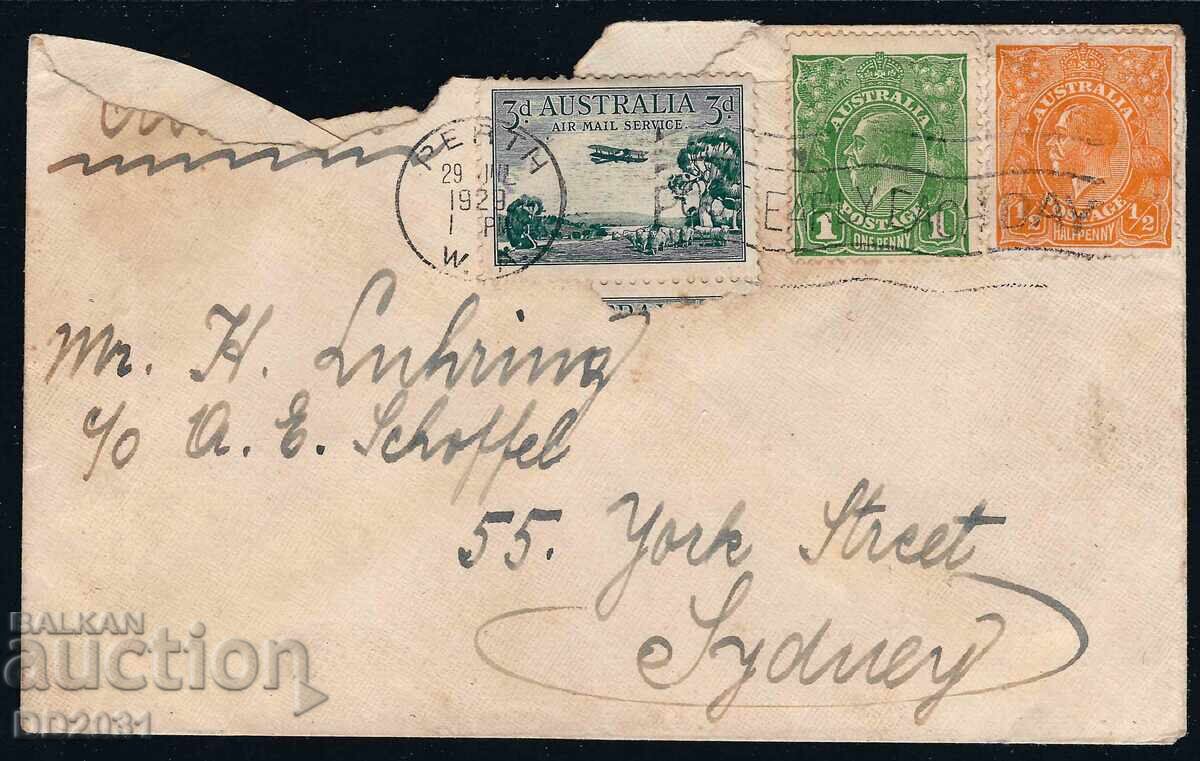 3d AUSTRALIA 3d
AIR MAIL SERVICE
PERTH
29 JUL
1929
1 P
W.A
AUSTRALIA
POSTAGE
1 ONE PENNY 1
AUSTRALIA
POSTAGE
1/2 HALFPENNY 1/2
Mr. H. Luhring
c/o A. E. Schoffel
55. York Street
Sydney
BALKAN
auction
DD2031